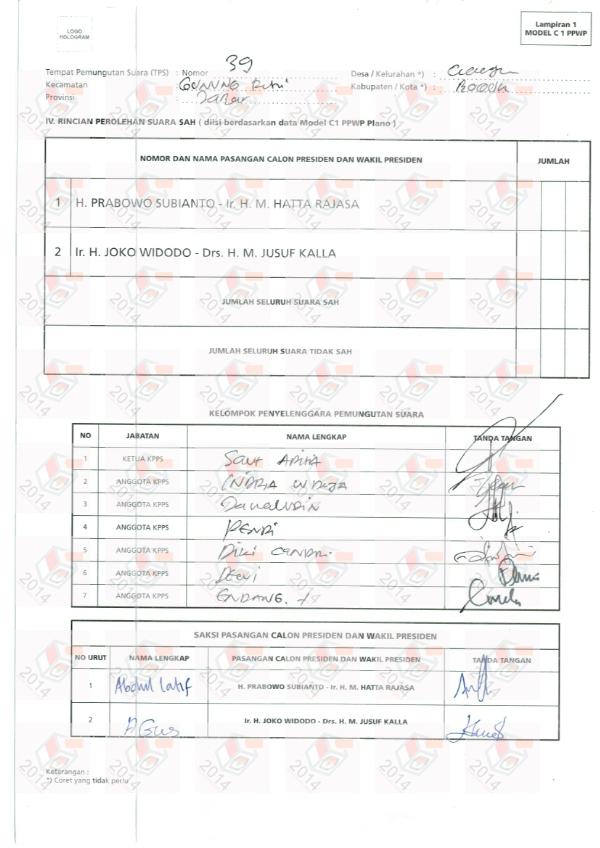 Lampiran 1
MODEL C 1 PPWP
LOGO
HOLOGRAM
Tempat Pemungutan Suara (TPS) : Nomor 39 Desa / Kelurahan *) :
Kecamatan : GUNUNG Putri Kabupaten / Kota *) :
Provinsi : Jabar
IV. RINCIAN PEROLEHAN SUARA SAH ( diisi berdasarkan data Model C1 PPWP Plano )
NOMOR DAN NAMA PASANGAN CALON PRESIDEN DAN WAKIL PRESIDEN JUMLAH
1 H. PRABOWO SUBIANTO - Ir. H. M. HATTA RAJASA
2 Ir. H. JOKO WIDODO - Drs. H. M. JUSUF KALLA
JUMLAH SELURUH SUARA SAH
JUMLAH SELURUH SUARA TIDAK SAH
KELOMPOK PENYELENGGARA PEMUNGUTAN SUARA
NO JABATAN NAMA LENGKAP TANDA TANGAN
1 KETUA KPPS
2 ANGGOTA KPPS INDRA WIJAJA
3 ANGGOTA KPPS
4 ANGGOTA KPPS PENDI
5 ANGGOTA KPPS DIKI CANDRA
6 ANGGOTA KPPS DEWI
7 ANGGOTA KPPS ENDANG. J
SAKSI PASANGAN CALON PRESIDEN DAN WAKIL PRESIDEN
NO URUT NAMA LENGKAP PASANGAN CALON PRESIDEN DAN WAKIL PRESIDEN TANDA TANGAN
1 Abdul Latif H. PRABOWO SUBIANTO - Ir. H. M. HATTA RAJASA
2 AGus Ir. H. JOKO WIDODO - Drs. H. M. JUSUF KALLA
Keterangan :
*) Coret yang tidak perlu
2014